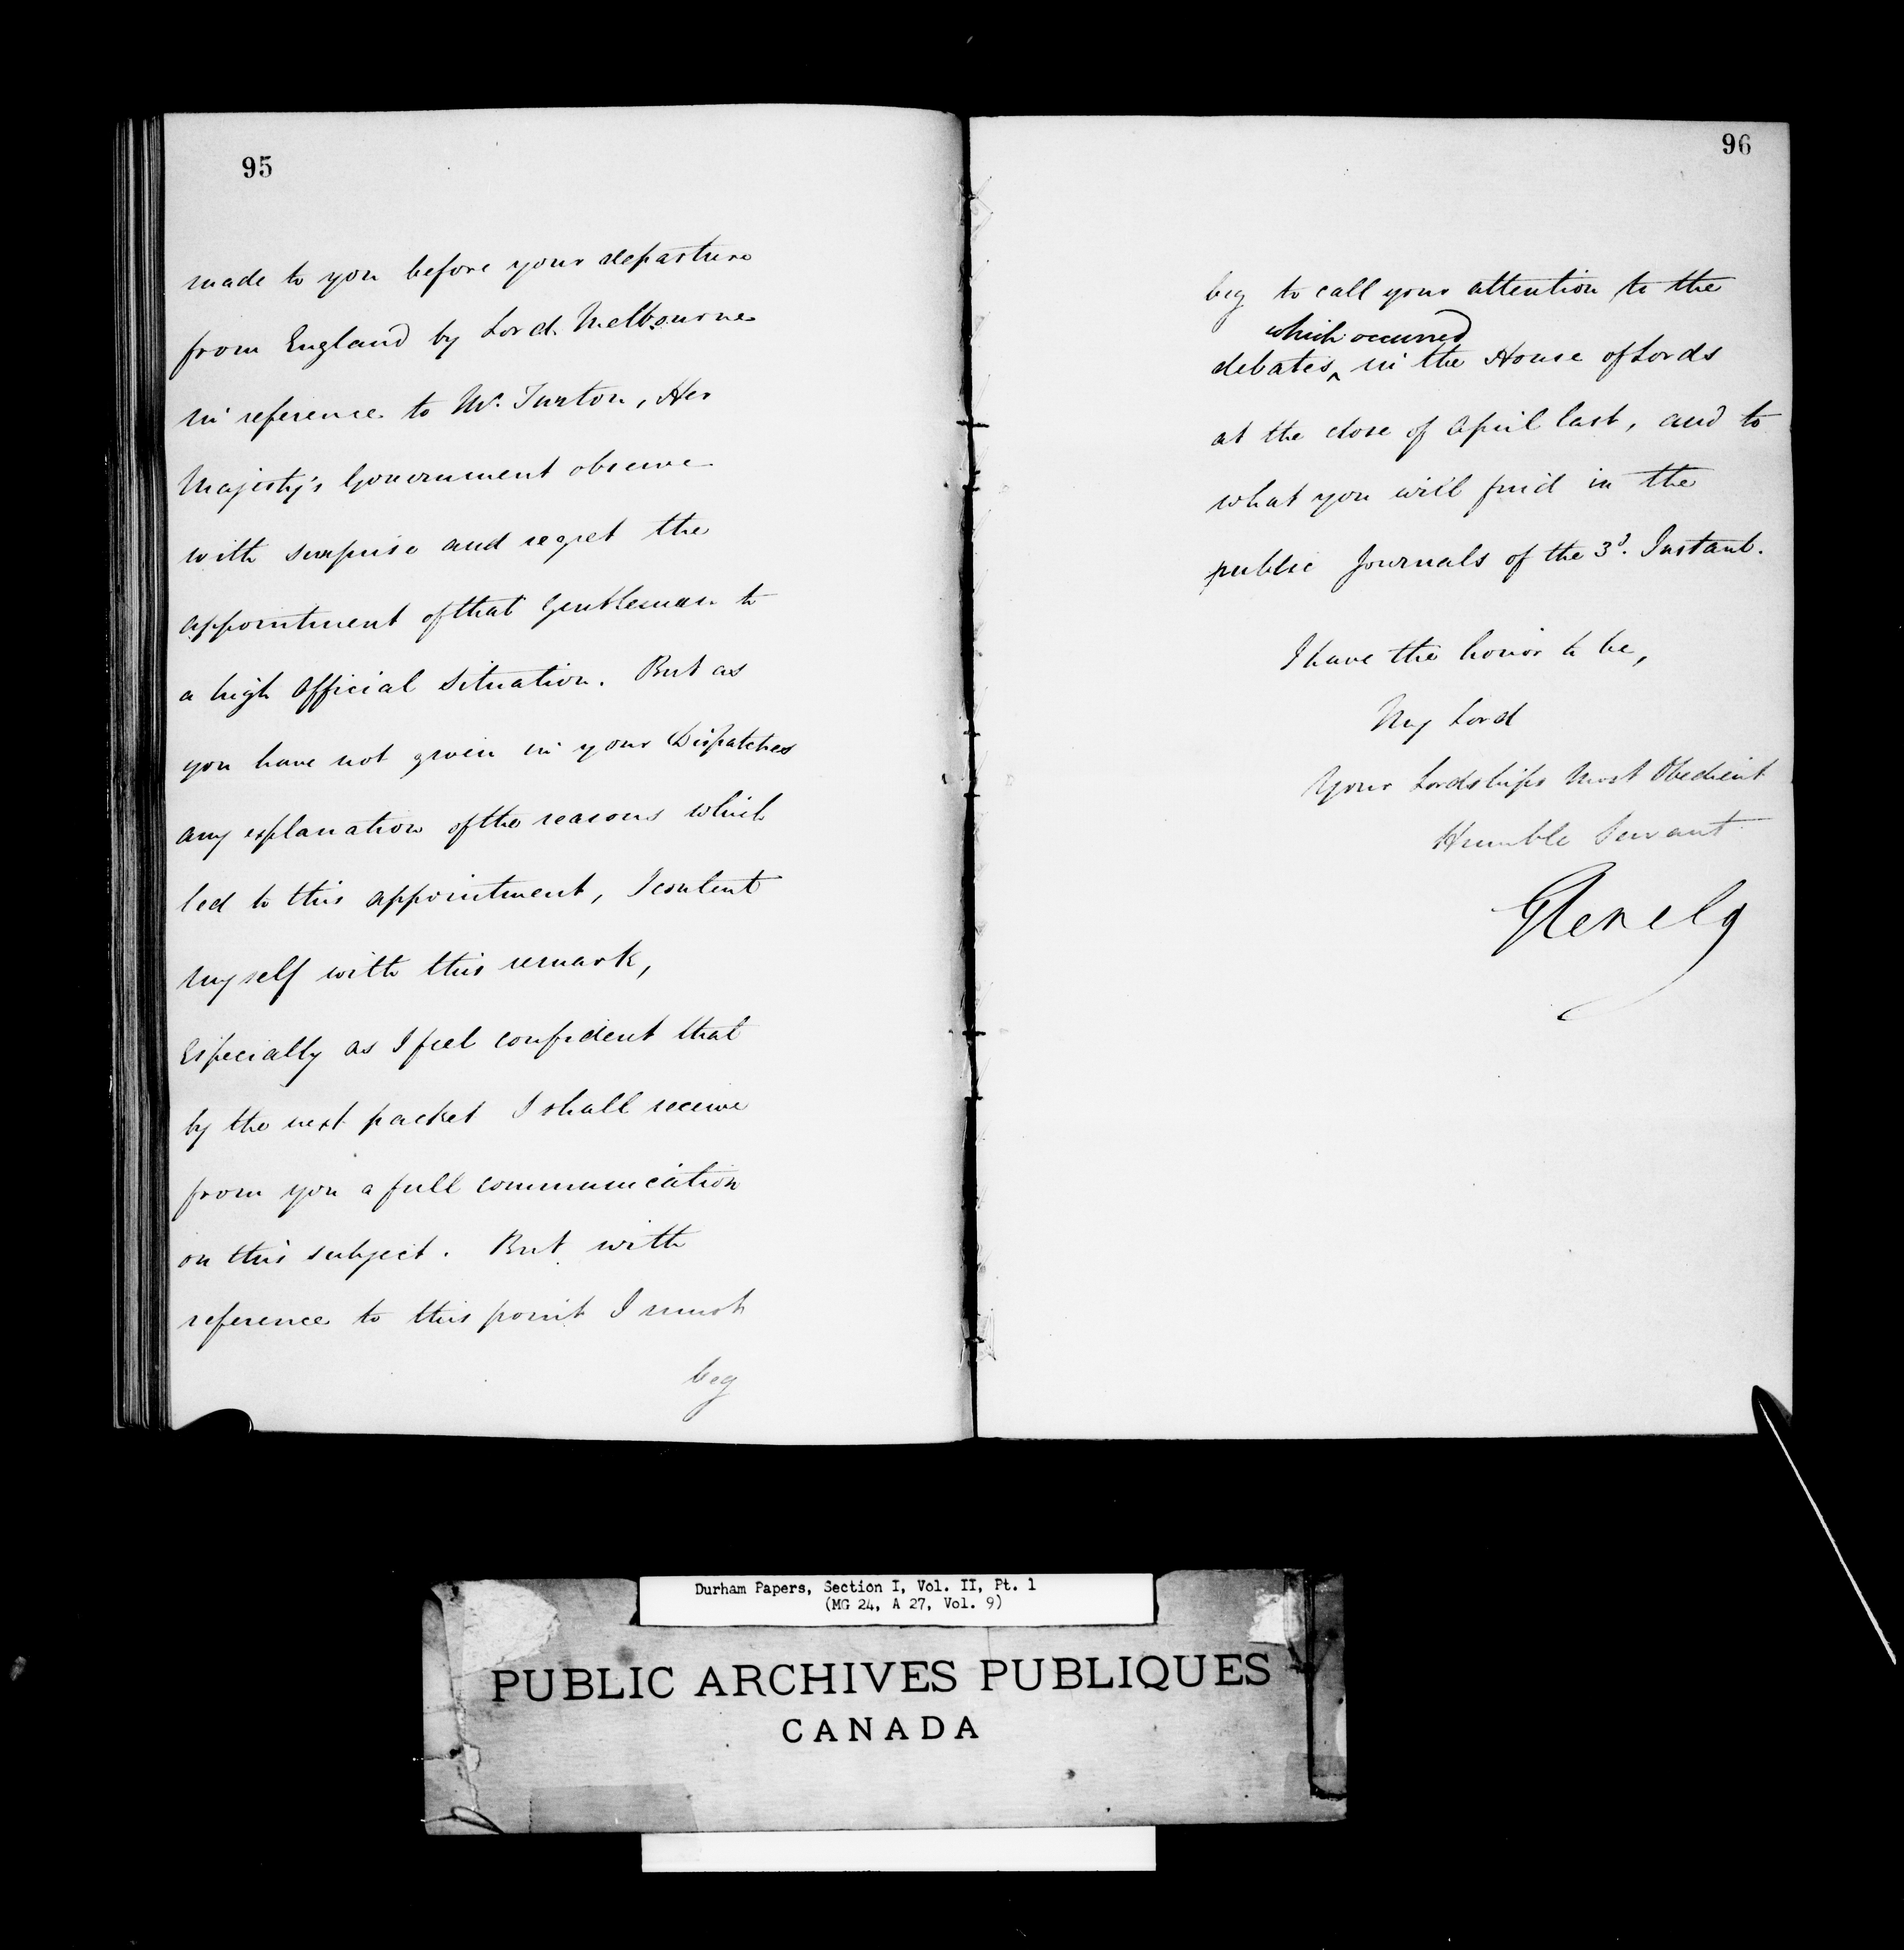 95
made to you before your departure
from England by Lord Melbourne
in reference to Mr. Turton, Her
Majesty's Government observe
with surprise and regret the
appointment of that Gentleman to
a high Official Situation. But as
you have not given in your Dispatches
any explanation of the reasons which
led to this appointment, I content
myself with this remark,
Especially as I feel confident that
by the next packet I shall receive
from you a full communication
on this subject. But with
reference to this point I must
beg
96
beg to call your attention to the
which occurred
debates ‸ in the House of Lords
at the close of April last, and to
what you will find in the
public Journals of the 3d. Instant.
I have the honor to be,
My Lord
Your Lordships Most Obedient
Humble Servant
Glenelg
Durham Papers, Section I, Vol. II, Pt. 1
(MG 24, A 27, Vol. 9)
PUBLIC ARCHIVES PUBLIQUES
CANADA